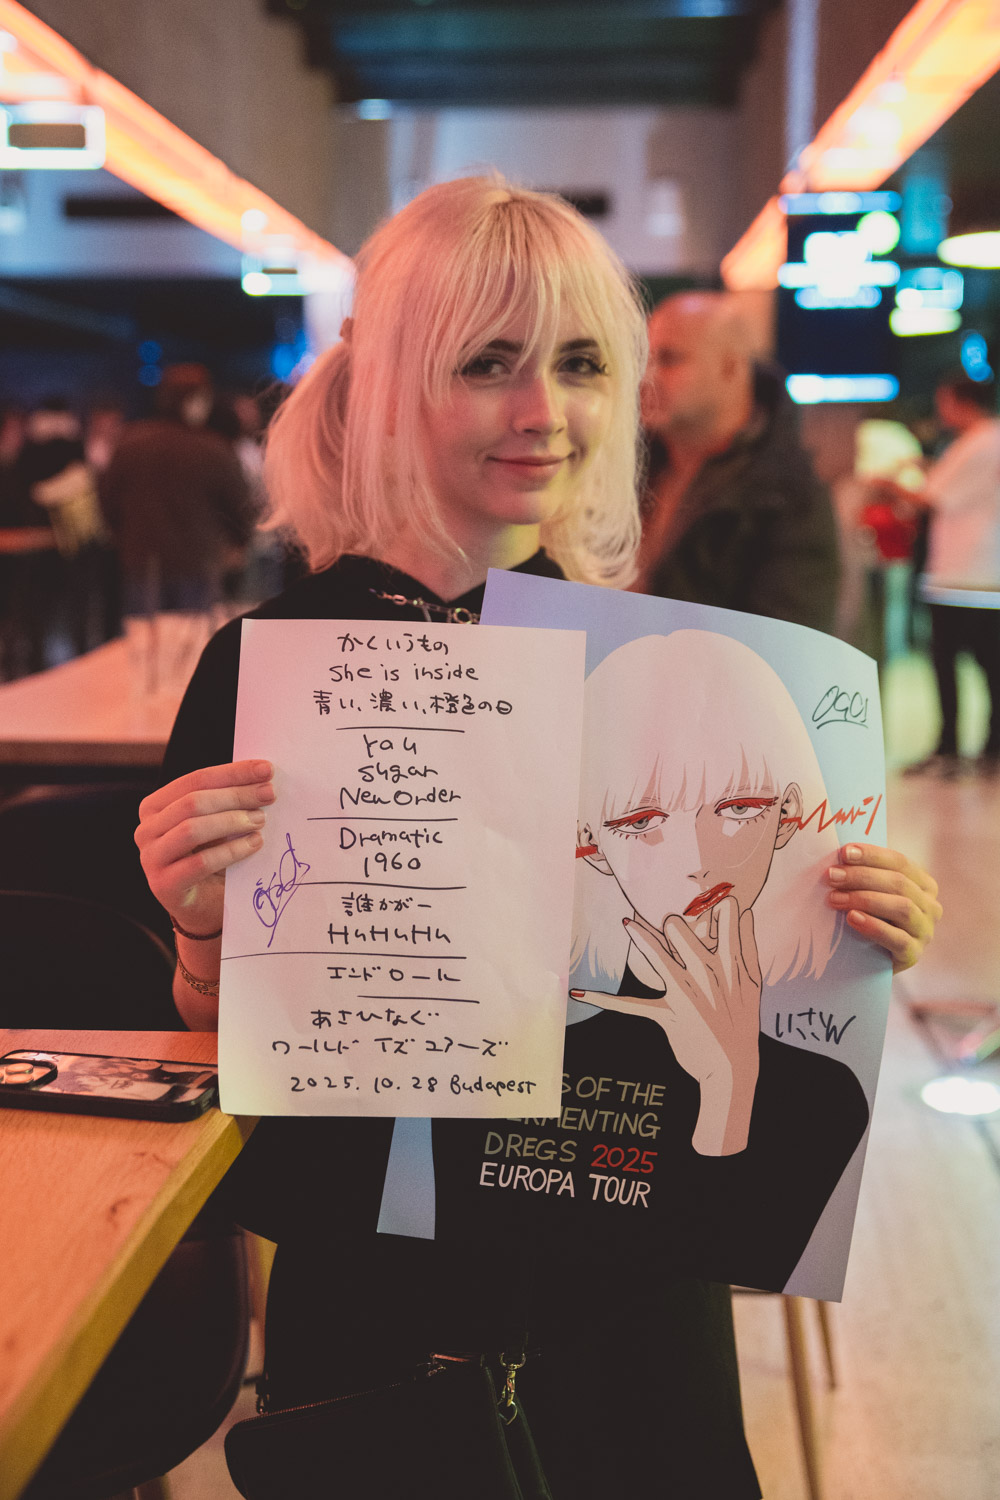 かくいうもの
She is inside
青い、濃い、橙色の日
you
sugar
New Order
Dramatic
1960
誰かがー
HuHuHu
エンドロール
あさひなぐ
ワールド イズ ユアーズ
2025.10.28 Budapest
OGC1
いさわ
S OF THE
ERMENTING
DREGS 2025
EUROPA TOUR